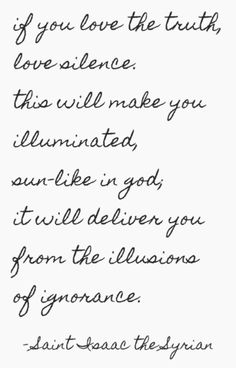 if you love the truth,
love silence.
this will make you
illuminated,
sun-like in god;
it will deliver you
from the illusions
of ignorance.
-Saint Isaac the Syrian